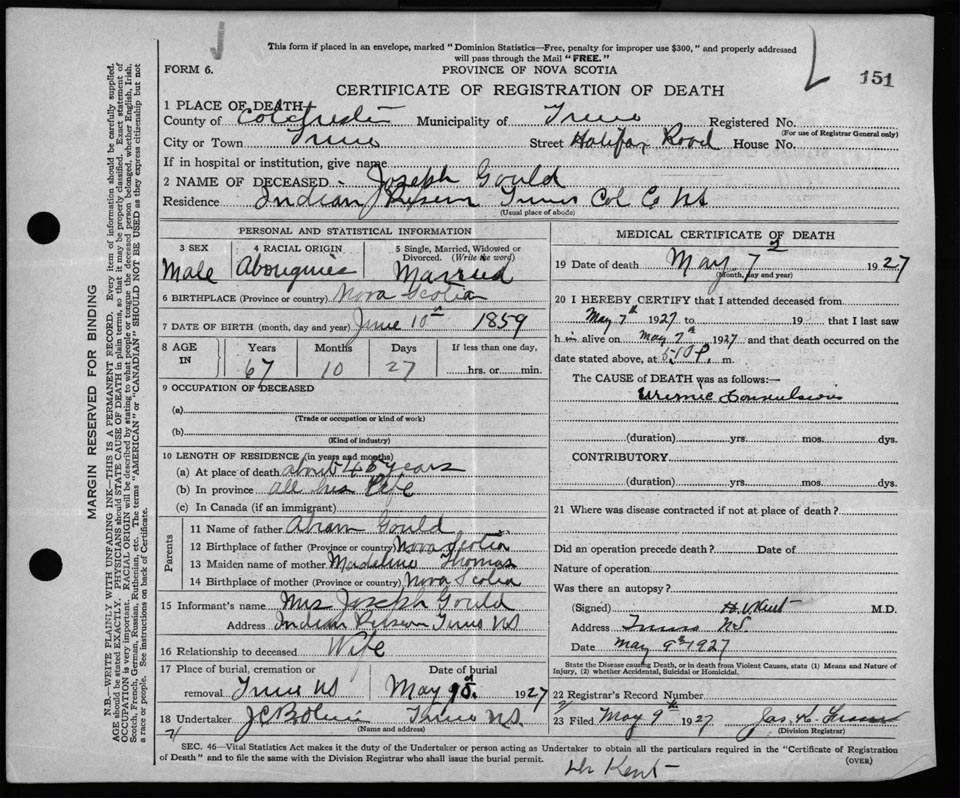 This form if placed in an envelope, marked "Dominion Statistics—Free, penalty for improper use $300," and properly addressed
will pass through the Mail "FREE."
FORM 6.
PROVINCE OF NOVA SCOTIA
151
CERTIFICATE OF REGISTRATION OF DEATH
1 PLACE OF DEATH
County of Colchester Municipality of Truro Registered No.
(For use of Registrar General only)
City or Town Truro Street Halifax Road House No.
If in hospital or institution, give name
2 NAME OF DECEASED Joseph Gould
Residence Indian Reserv Truro Col Co NS
(Usual place of abode)
PERSONAL AND STATISTICAL INFORMATION
3 SEX
4 RACIAL ORIGIN
5 Single, Married, Widowed or
Divorced. (Write the word)
Male
Married
6 BIRTHPLACE (Province or country) Nova Scotia
7 DATE OF BIRTH (month, day and year) June 10th 1859
8 AGE IN
Years Months Days If less than one day,
67 10 27 hrs. or min.
9 OCCUPATION OF DECEASED
(a)
(Trade or occupation or kind of work)
(b)
(Kind of industry)
10 LENGTH OF RESIDENCE (in years and months)
(a) At place of death about 45 years
(b) In province all his life
(c) In Canada (if an immigrant)
Parents
11 Name of father Abram Gould
12 Birthplace of father (Province or country) Nova Scotia
13 Maiden name of mother Madeline Thomas
14 Birthplace of mother (Province or country) Nova Scotia
15 Informant's name Mrs Joseph Gould
Address Indian Reserv Truro NS
16 Relationship to deceased Wife
17 Place of burial, cremation or Date of burial
removal Truro NS May 9 1927
18 Undertaker Truro N.S.
(Name and address)
MEDICAL CERTIFICATE OF DEATH
19 Date of death May 7 1927
(Month, day and year)
20 I HEREBY CERTIFY that I attended deceased from
May 7th 1927 to 19 that I last saw
h im alive on May 7th 1927 and that death occurred on the
date stated above, at P. m.
The CAUSE of DEATH was as follows:—
Uremic Convulsions
(duration) yrs. mos. dys.
CONTRIBUTORY
(duration) yrs. mos. dys.
21 Where was disease contracted if not at place of death?
Did an operation precede death? Date of
Nature of operation
Was there an autopsy?
(Signed) H. V. Kent M.D.
Address Truro NS.
Date May 9th 1927
State the Disease causing Death, or in death from Violent Causes, state (1) Means and Nature of
Injury, (2) whether Accidental, Suicidal or Homicidal.
22 Registrar's Record Number
23 Filed May 9th 1927
(Division Registrar)
SEC. 46—Vital Statistics Act makes it the duty of the Undertaker or person acting as Undertaker to obtain all the particulars required in the "Certificate of Registration
of Death" and to file the same with the Division Registrar who shall issue the burial permit.
(OVER)
Dr Kent
MARGIN RESERVED FOR BINDING
N.B.—WRITE PLAINLY WITH UNFADING INK—THIS IS A PERMANENT RECORD. Every item of information should be carefully supplied.
AGE should be stated EXACTLY. PHYSICIANS should STATE CAUSE OF DEATH in plain terms, so that it may be properly classified. Exact statement of
OCCUPATION is very important. RACIAL ORIGIN will be described by stating to what people or tongue the deceased person belonged, whether English, Irish,
Scotch, French, German, Russian, Ruthenian, etc. The terms "AMERICAN" or "CANADIAN" SHOULD NOT BE USED as they express citizenship but not
a race or people. See instructions on back of Certificate.